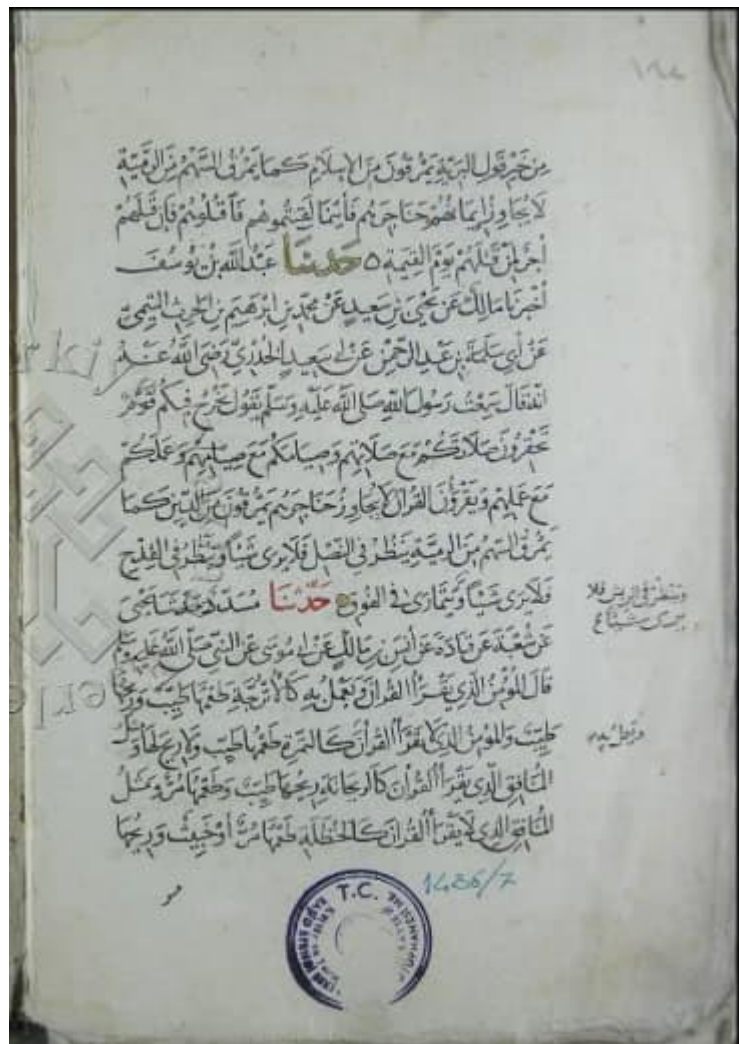 ١٩٤
مِن خَيْرِ قَوْلِ البَرِيَّةِ يَمْرُقُونَ مِنَ الإِسْلَامِ كَمَا يَمْرُقُ السَّهْمُ مِنَ الرَّمِيَّةِ
لَا يُجَاوِزُ إِيمَانُهُمْ حَنَاجِرَهُمْ فَأَيْنَمَا لَقِيتُمُوهُمْ فَاقْتُلُوهُمْ فَإِنَّ قَتْلَهُمْ
أَجْرٌ لِمَنْ قَتَلَهُمْ يَوْمَ القِيمَةِ ه حَدَّثَنَا عَبْدُ اللَّهِ بْنُ يُوسُفَ
أَخْبَرَنَا مَالِكٌ عَنْ يَحْيَى بْنِ سَعِيدٍ عَنْ مُحَمَّدِ بْنِ إِبْرَهِيمَ بْنِ الحَرِثِ التَّيْمِيِّ
عَنْ أَبِي سَلَمَةَ بْنِ عَبْدِ الرَّحْمَنِ عَنْ أَبِي سَعِيدٍ الخُدْرِيِّ رَضِيَ اللَّهُ عَنْهُ
أَنَّهُ قَالَ سَمِعْتُ رَسُولَ اللَّهِ صَلَّى اللَّهُ عَلَيْهِ وَسَلَّمَ يَقُولُ يَخْرُجُ فِيكُمْ قَوْمٌ
تَحْقِرُونَ صَلَاتَكُمْ مَعَ صَلَاتِهِمْ وَصِيَامَكُمْ مَعَ صِيَامِهِمْ وَعَمَلَكُمْ
مَعَ عَمَلِهِمْ وَيَقْرَؤُنَ القُرْآنَ لَا يُجَاوِزُ حَنَاجِرَهُمْ يَمْرُقُونَ مِنَ الدِّينِ كَمَا
يَمْرُقُ السَّهْمُ مِنَ الرَّمِيَّةِ يَنْظُرُ فِي النَّصْلِ فَلَا يَرَى شَيْئًا وَيَنْظُرُ فِي القِدْحِ
فَلَا يَرَى شَيْئًا وَيَتَمَارَى فِي الفُوقِ حَدَّثَنَا مُسَدَّدٌ حَدَّثَنَا يَحْيَى
وينظر في الريش فلا
يرى شيئا
عَنْ شُعْبَةَ عَنْ قَتَادَةَ عَنْ أَنَسِ بْنِ مَالِكٍ عَنْ أَبِي مُوسَى عَنِ النَّبِيِّ صَلَّى اللَّهُ عَلَيْهِ وَسَلَّمَ
قَالَ المُؤْمِنُ الَّذِي يَقْرَأُ القُرْآنَ وَيَعْمَلُ بِهِ كَالأُتْرُجَّةِ طَعْمُهَا طَيِّبٌ وَرِيحُهَا
طَيِّبٌ وَالمُؤْمِنُ الَّذِي لَا يَقْرَأُ القُرْآنَ كَالتَّمْرَةِ طَعْمُهَا طَيِّبٌ وَلَا رِيحَ لَهَا وَمَثَلُ
المُنَافِقِ الَّذِي يَقْرَأُ القُرْآنَ كَالرَّيْحَانَةِ رِيحُهَا طَيِّبٌ وَطَعْمُهَا مُرٌّ وَمَثَلُ
المُنَافِقِ الَّذِي لَا يَقْرَأُ القُرْآنَ كَالحَنْظَلَةِ طَعْمُهَا مُرٌّ أَوْ خَبِيثٌ وَرِيحُهَا
مر
1436/7
T.C.